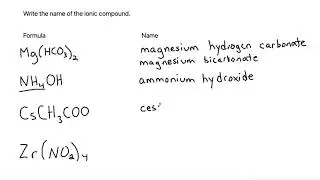 Write the name of the ionic compound.
Formula Name
Mg(HCO₃)₂ magnesium hydrogen carbonate
magnesium bicarbonate
NH₄OH ammonium hydroxide
CsCH₃COO ces
Zr(NO₂)₄